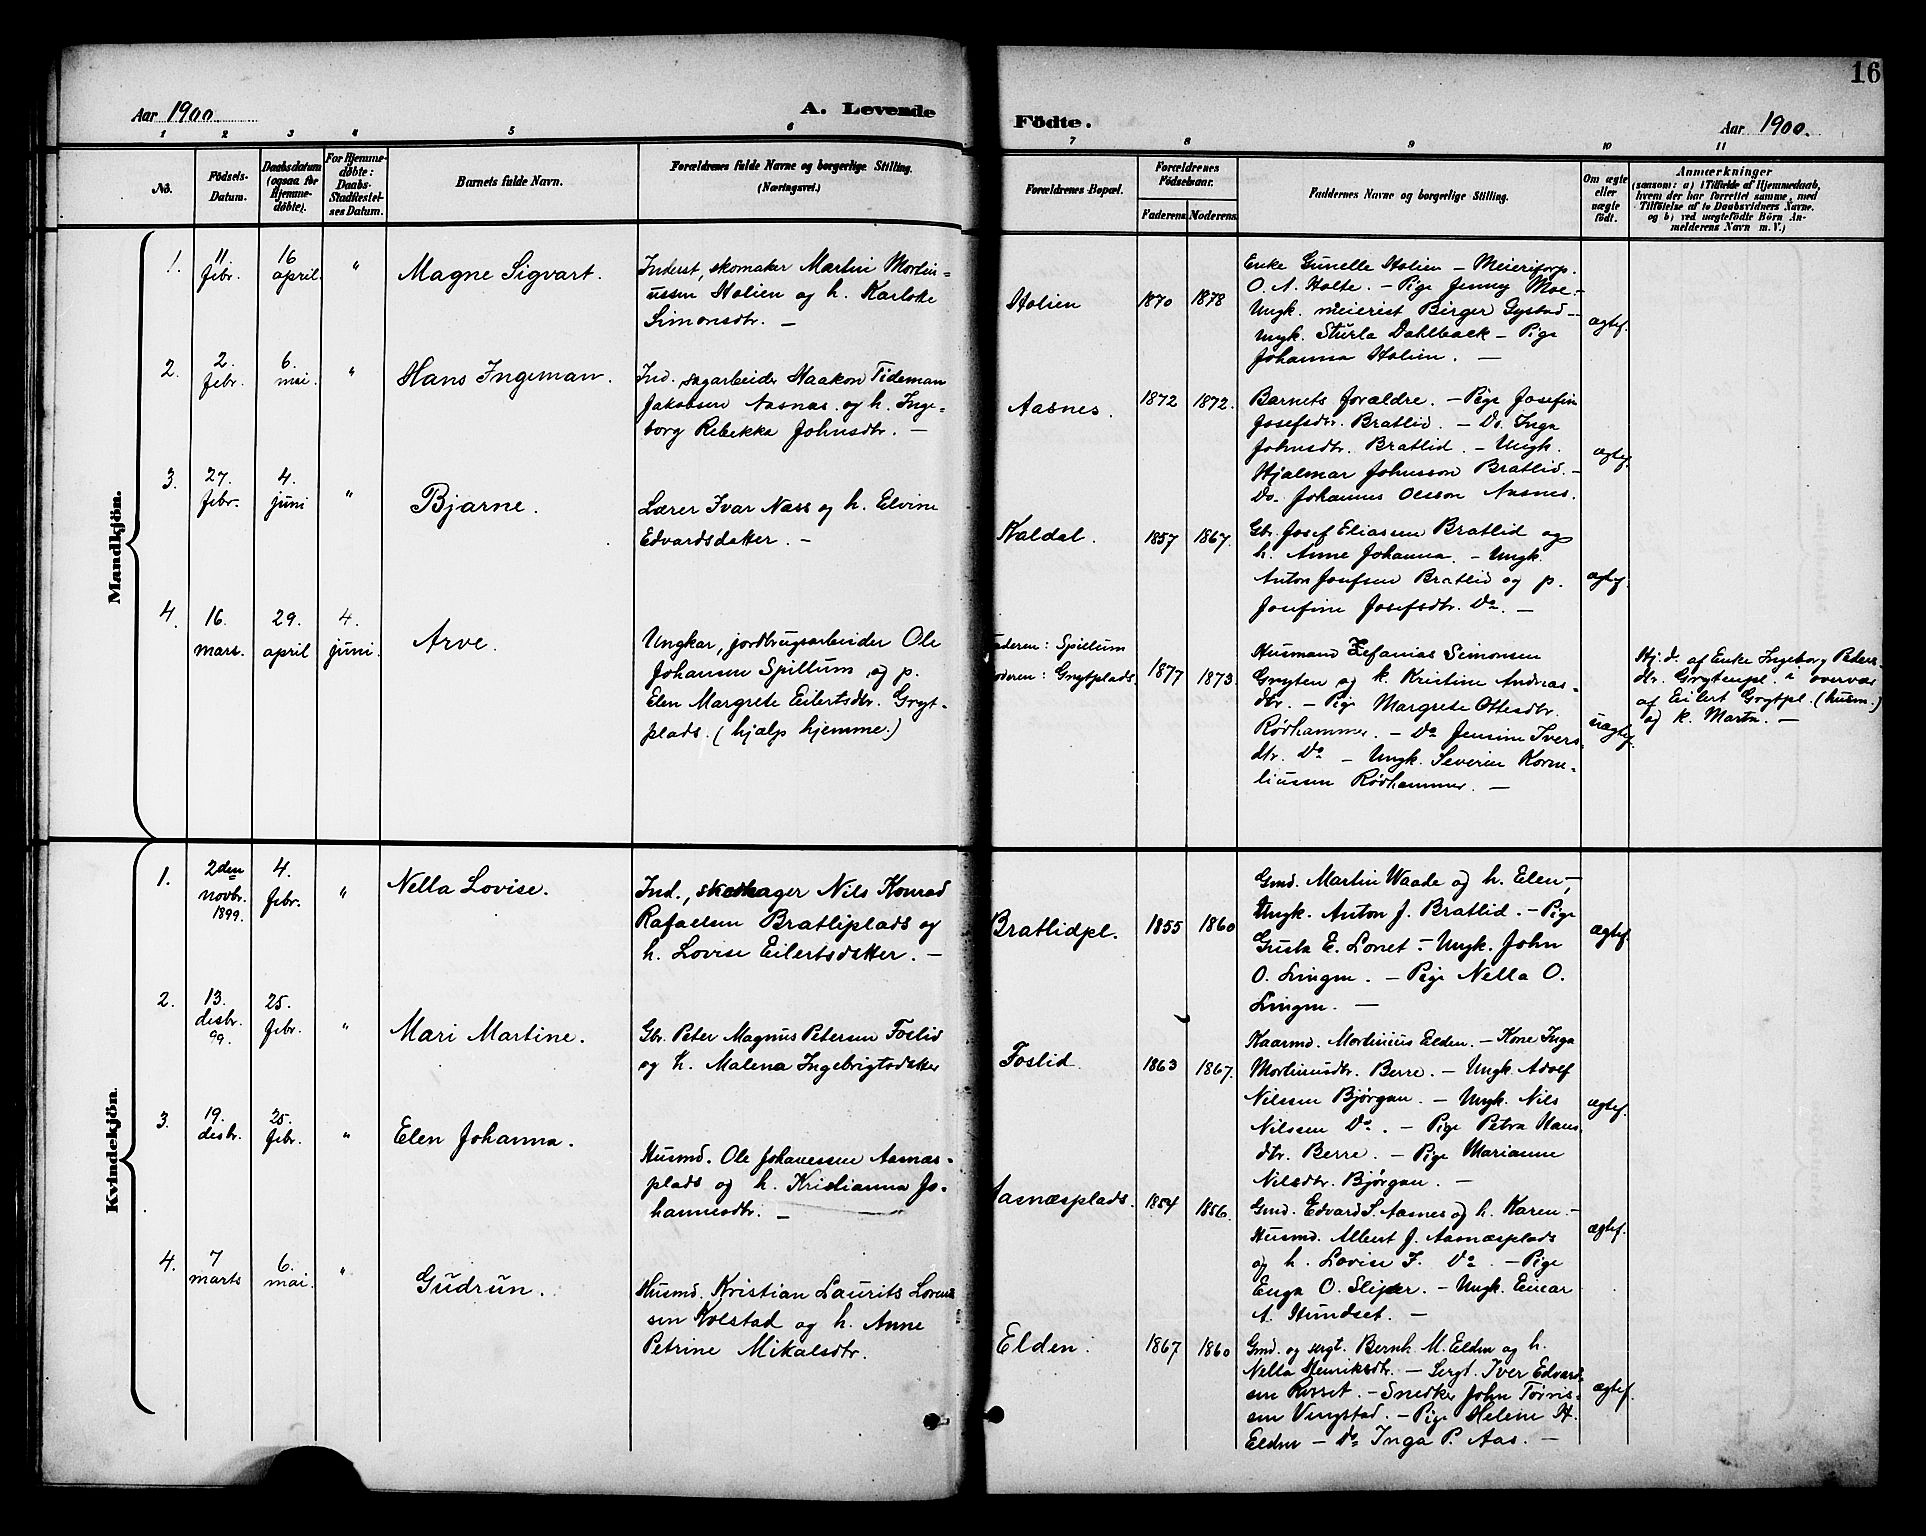 16
Aar 1900.
A. Levende
Födte.
Aar 1900.
1 2 3 4 5 6 7 8 9 10 11
No.
Födsels-
Datum.
Daabsdatum
(ogsaa for
Hjemme-
døbte).
For Hjemme-
døbte:
Daabs-
Stadfæstel-
ses Datum.
Barnets fulde Navn.
Forældrenes fulde Navne og borgerlige Stilling.
(Næringsvei.)
Forældrenes Bopæl.
Forældrenes
Födselsaar.
Faderens
Moderens
Faddernes Navne og borgerlige Stilling.
Om ægte
eller
uægte
født.
Anmærkninger
(saasom: a) i Tilfælde af Hjemmedaab,
hvem der har forrettet samme, med
Tilföielse af to Daabsvidners Navne.
og b) ved uægtefödte Börn An-
melderens Navn m. V.)
Mandkjön.
1.
11.
febr.
16
april
"
Magne Sigvart.
Inderst, skomaker Martin Mortin-
ussen Holien og h. Karlotte
Simonsdtr. —
Holien
1870
1878
Enke Gunelle Holien — Meieriforp.
O. A. Holte. — Pige Jenny Moe —
Ungk. meierist Birger Gystad —
Ungk. Sturla Dahlback — Pige
Johanna Holien. —
ægtef.
2.
2.
febr.
6.
mai.
"
Hans Ingeman.
Ind. sagarbeider Haakon Tideman
Jakobsen Aasnas. og h. Inge-
borg Rebekka Johnsdtr. —
Aasnes.
1872
1872.
Barnets forældre. — Pige Josefin
Josefsdtr. Bratlid. — Do. Inga
Johnsdtr. Bratlid. — Ungk.
Hjalmar Johnsson Bratlid. —
Do. Johannes Olsson Aasnes.
ægtef.
3.
27.
febr.
4.
juni
"
Bjarne.
Lærer Ivar Næss og h. Elvine
Edvardsdatter. —
Kaldal.
1857
1867.
Gbr. Josef Eliassen Bratlid og
h. Anne Johanna. — Ungk.
Anton Josefsen Bratlid og p.
Josefine Josefsdtr. Do. —
ægtef.
4.
16.
mars.
29.
april
4.
juni.
Arve.
Ungkar, jordbrugsarbeider Ole
Johansen Spillum og p.
Elen Margrete Eilertsdtr. Gryt-
plads. (hjælp hjemme.)
Faderen: Spillum
Moderen: Grytplads.
1877
1873.
Husmand Zefanias Simonsen
Gryten og k. Kristine Andreas-
dtr. — Pige Margrete Ottesdtr.
Rødhammer. — Do Jensine Ivers-
dtr. Do — Ungk. Severin Korne-
liussen Rødhammer. —
uægtef.
Hj. d. af Enke Ingeborg Peders-
dtr. Grytenpl. i overvær
af Eilert Grytpl. (husm.)
og k. Marta. —
Kvindekjön.
1.
2den
novbr.
1899.
4.
febr.
"
Nella Lovise.
Ind., Nils Konrad
Rafaelsen Bratliplads og
h. Lovise Eilertsdatter. —
Bratlidpl.
1855
1860
Gmd. Martin Waade og h. Elen —,
Ungk. Anton J. Bratlid. — Pige
Gusta E. Lonet — Ungk. John
O. Lingen. — Pige Nella O.
Lingen. —
ægtef.
2.
13.
desbr.
99.
25.
febr.
"
Mari Martine.
Gbr. Peter Magnus Petersen Foslid
og h. Malena Ingebrigtsdatter
Foslid
1863
1867.
Kaarmd. Mortinius Elden. — Kone Inga
Mortinusdtr. Berre. — Ungk. Adolf
Nilssen Bjørgan. — Ungk. Nils
Nilssen Do. — Pige Petra Hans
dtr. Berre. — Pige Marianne
Nilsdtr. Bjørgan. —
ægtef.
3.
19.
desbr.
25.
febr.
"
Elen Johanna.
Husmd. Ole Johanessen Aasnæs-
plads og h. Kristianna Jo-
hannesdtr. —
Aasnæsplads.
1854
1856.
Gmd. Edvard S. Aasnes og h. Karen. —
Husmd. Albert J. Aasnæsplads
og h. Lovise F. Do. — Pige
Enga O. Slipper. — Ungk. Einar
A. Hundset. —
ægtef.
4.
7
marts
6.
mai.
"
Gudrun.
Husmd. Kristian Laurits Loren-
sen Kolstad og h. Anne
Petrine Mikalsdtr.
Elden.
1867
1860
Gmd. og sergt. Bernh. M. Elden og h.
Nella Henriksdtr. — Sergt. Iver Edvard
sen Risset. — Snedker John Tørris-
sen Vengstad. — Pige Helene H.
Elden — Do Inga P. Aas. —
ægtef.